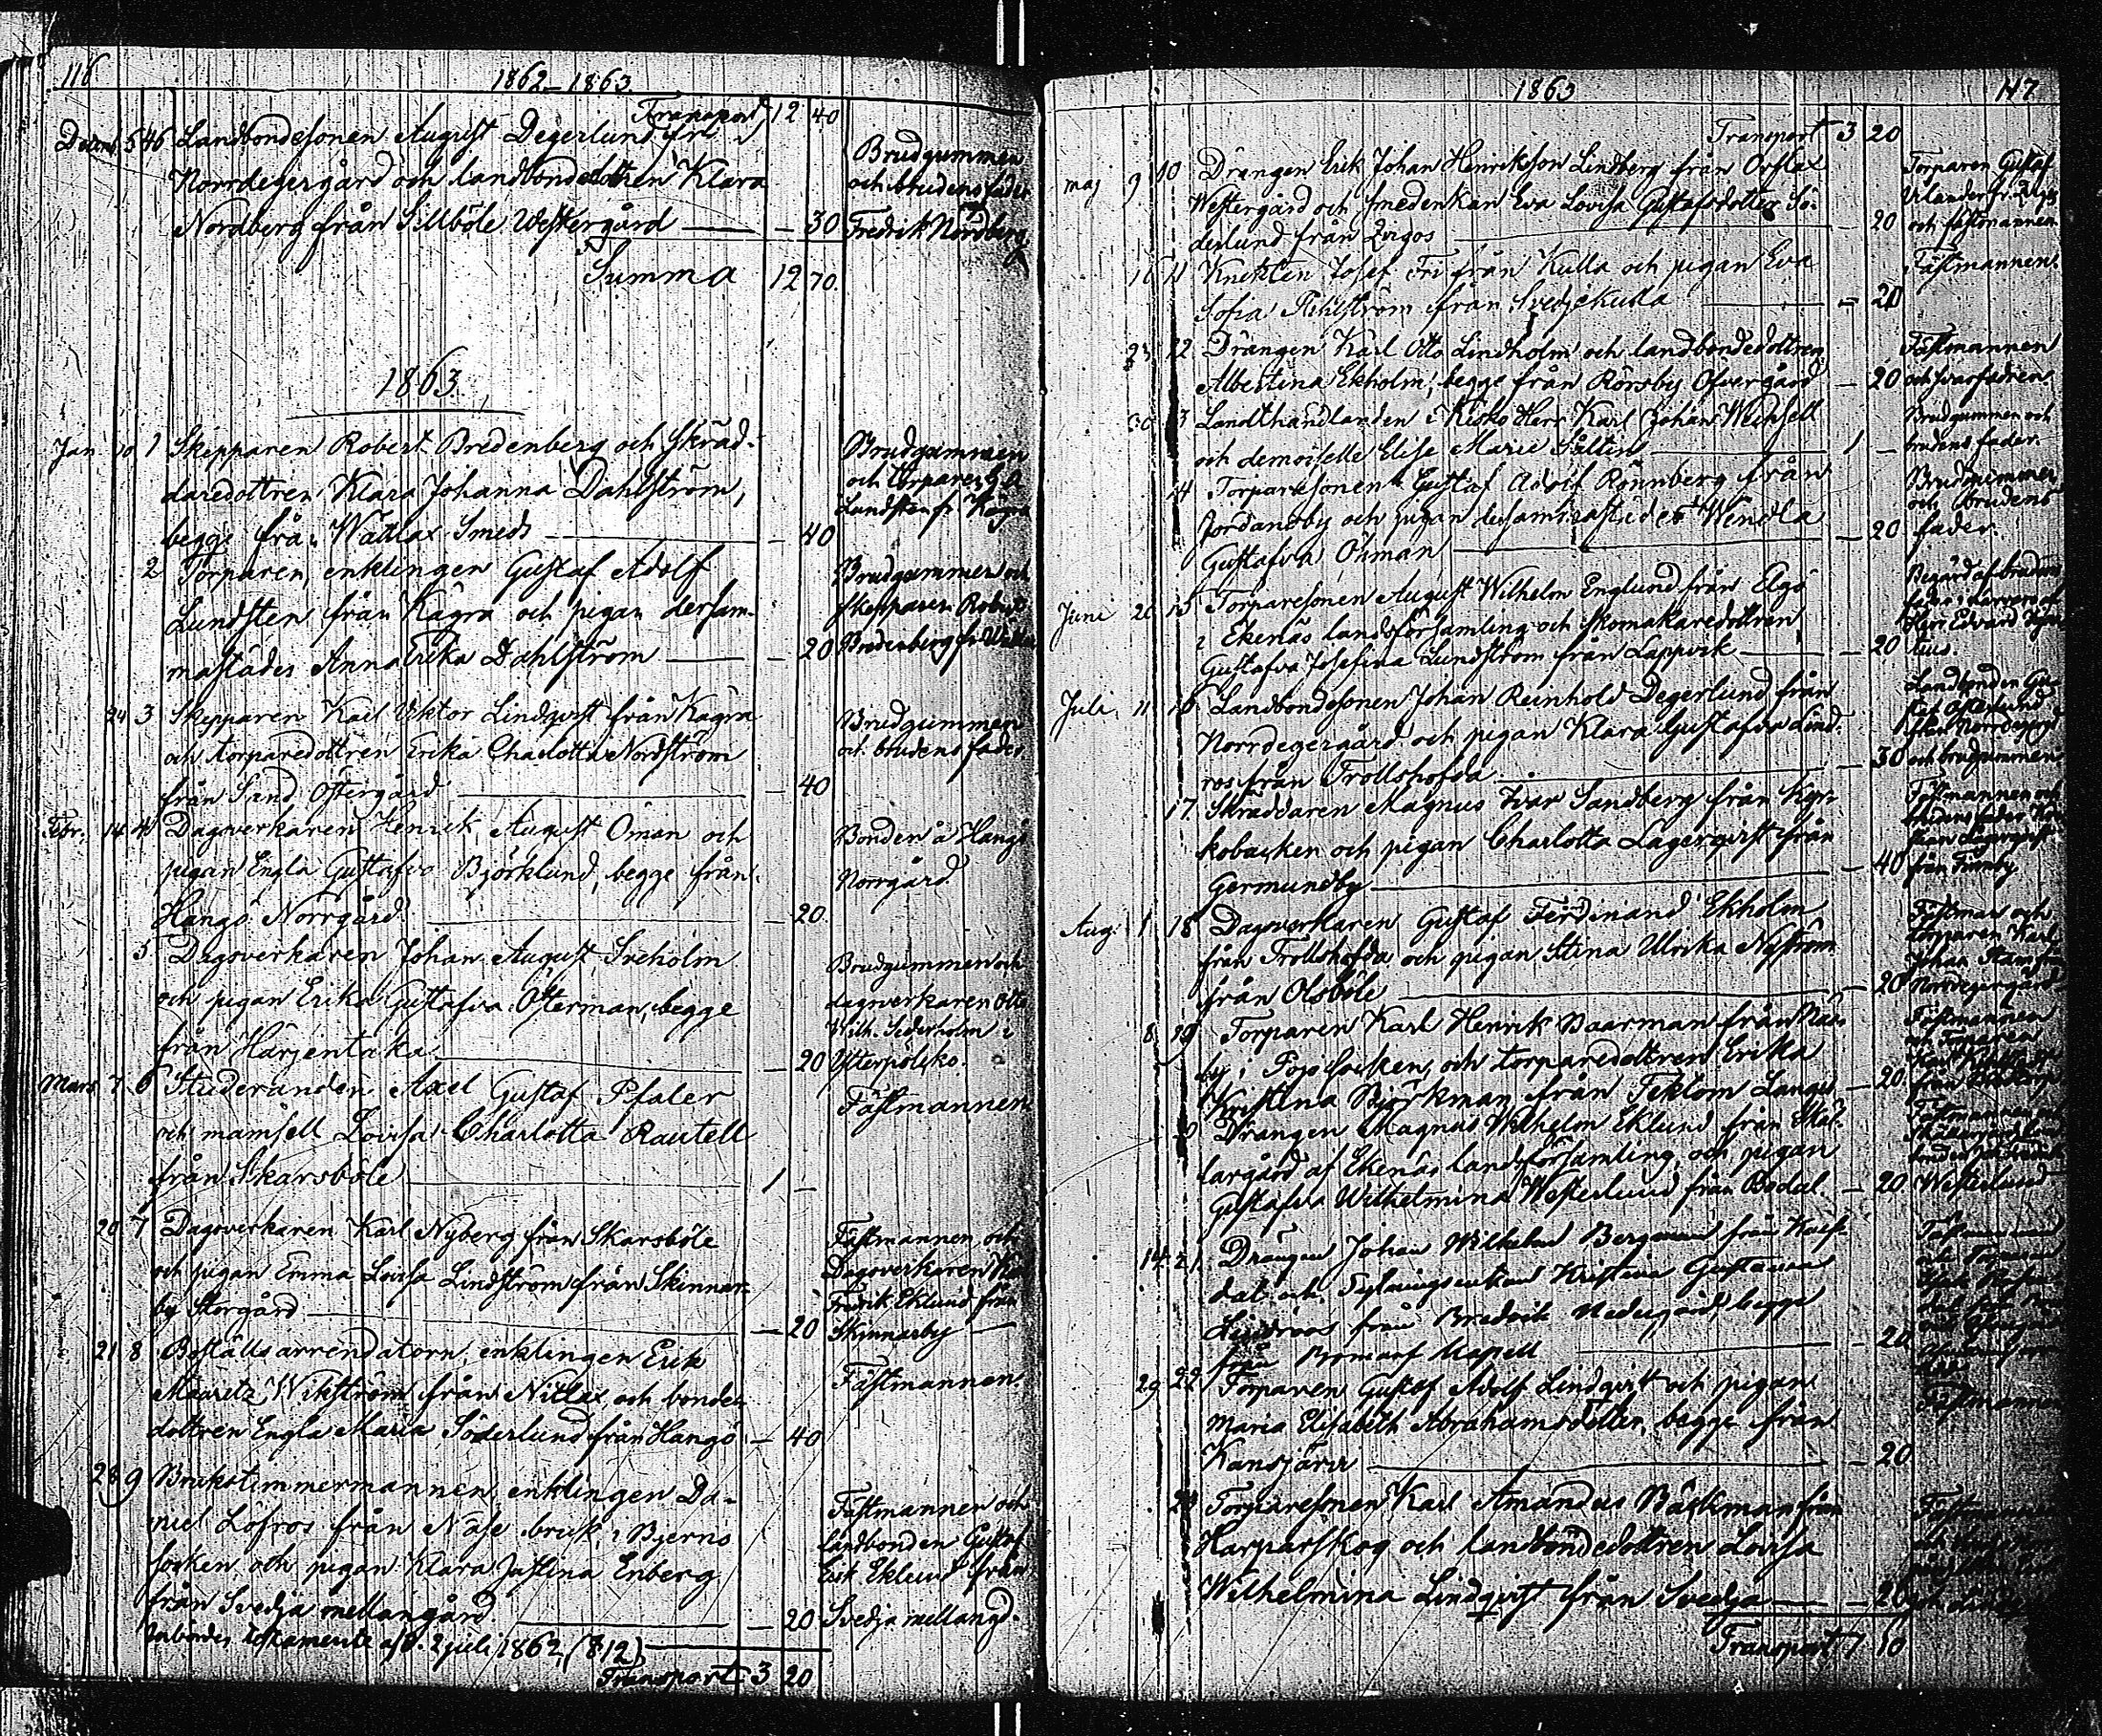 116
1862–1863.
Transport 12 40
Decemb. 5 46 Landbondesonen August Degerlund frn
Norrdegergård och landbondedottren Klara
Nordberg från Sillböle Westergård — 30
Brudgummen
och brudens fader
Fredrik Nordberg
Summa 12 70.
1863.
Jan 10 1 Skepparen Robert Bredenberg och skräd-
daredottren Klara Johanna Dahlström,
begge från Wättlax Smeds — 40
Brudgummen
och torparen G. A.
Lundsten fr. Kägra
2 Torparen, enklingen Gustaf Adolf
Lundsten från Kägra och pigan dersam-
mastädes Anna Erika Dahlström — 20
Brudgummen och
skepparen Robert
Bredenberg fr.
24 3 Skepparen Karl Viktor Lindqvist från Kägra
och torparedottren Erika Charlotta Nordström
från Sand Östergård — 40
Brudgummen
och brudens fader
Febr. 14 4 Dagsverkaren Henrik August Öman och
pigan Engla Gustafva Björklund, begge från
Hangö Norrgård — 20.
Bonden å Hangö
Norrgård
5 Dagsverkaren Johan August Sveholm
och pigan Erika Gustafva Österman, begge
från Harjentaka — 20
Brudgummen och
dagsverkaren Otto
Wilh. Sederholm i
Ysterpolsko.
Mars 7 6 Studeranden Axel Gustaf Pfaler
och mamsell Lovisa Charlotta Rautell
från Skarsböle 1 —
Fästmannen
20 7 Dagsverkaren Karl Nyberg från Skarsböle
och pigan Emma Lovisa Lindström från Skinnar-
by Storgård — 20
Fästmannen och
Dagsverkaren
Fredrik Eklund från
Skinnarby
21 8 Boställsarrendatorn, enklingen Erik
Mauritz Wikström från Nitlax, och bonde-
dottren Engla Maria Söderlund från Hangö — 40
Fästmannen
28 9 Brukstimmermannen, enklingen Da-
niel Löfros från Näse bruk i Bjerno
socken, och pigan Klara Justina Enberg
från Svedja mellangård — 20
Fästmannen och
landbonden Gustaf
Erik Eklund från
Svedja mellangd.
testamente af d. 2 juli 1862 (812)
Transport 3 20
1863
117
Transport 3 20
maj 9 10 Drängen Erik Johan Henriksson Lindberg från Orslax
Westergård och smedenkan Eva Lovisa Gustafsdotter Sö-
derlund från — 20
Torparen Gustaf
och fästmannen
16 11 Knekten Josef Fri från Kulla och pigan Eva
Sofia Ahlström från Svedjekulla — 20
Fästmannen.
23 12 Drängen Karl Otto Lindholm och landbondedottren
Albertina Ekholm, begge från Rörsby Öfvergård — 20
Fästmannen
och svärfadren
30 13 Landthandlanden i Kisko Herr Karl Johan
och demoiselle Elise Marie Sältin 1 —
Brudgummen och
brudens fader.
14 Torparesonen Gustaf Adolf Rönnberg från
Jordansby och pigan dersammastädes Wendla
Gustafva Öhman — 20
Brudgummen
och brudens
fader.
Juni 20 15 Torparesonen August Wilhelm Englund från Elgö
i Ekenäs landsförsamling och skomakaredottren
Gustafva Josefina Lundström från Lappvik — 20
Begärd af brudens
Herr Edvard
Juli 11 16 Landbondesonen Johan Reinhold Degerlund från
Norrdegergård och pigan Klara Gustafva Lind-
ros från Trollshofda — 30
Landbonden
och brudgummen
17 Skräddaren Magnus Ivar Sandberg från Kyr-
kobacken och pigan Charlotta Lagerqvist från
Germundby — 40
Fästmannen och
brudens fader
Aug. 1 18 Dagsverkaren Gustaf Ferdinand Ekholm
från Trollshofda och pigan Stina Ulrika Nyström
från Olsböle — 20
Fästman och
torparen Karl
Johan
Norrdegergård
8 19 Torparen Karl Henrik Baarman från
by i Pojo socken, och torparedottren Erika
Kristina Björkman från Teklom Langs — 20
Fästmannen
och Torparen
20 Drängen Magnus Wilhelm Eklund från Skål-
largård af Ekenäs landsförsamling, och pigan
Gustafva Wilhelmina Westerlund från Bodal — 20
Fästmannen
Westerlund
14 21 Drängen Johan Wilhelm Bergman från
dal och Kristina Gustava
Lindroos från Bredvik Nedergård, begge
från Bromarf Kapell — 20
29 22 Torparen Gustaf Adolf Lindqvist och pigan
Maria Elisabeth Abrahamsdotter, begge från
Kansjärvi — 20
Fästmannen
23 Torparesonen Karl Amandus Bäckman från
Harparskog och landbondedottren Lovisa
Wilhelmina Lindqvist från Svedja — 20
Transport 7 10